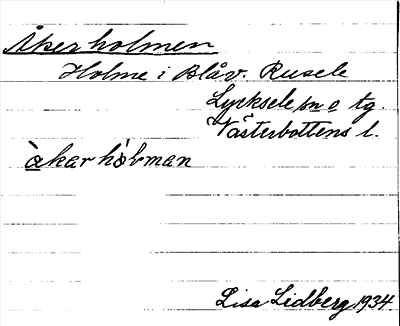 Åkerholmen
Holme i Blåv. Rusele
Lycksele sn o tg.
Västerbottens l.
àkar hòlman
Lisa Lidberg 1934